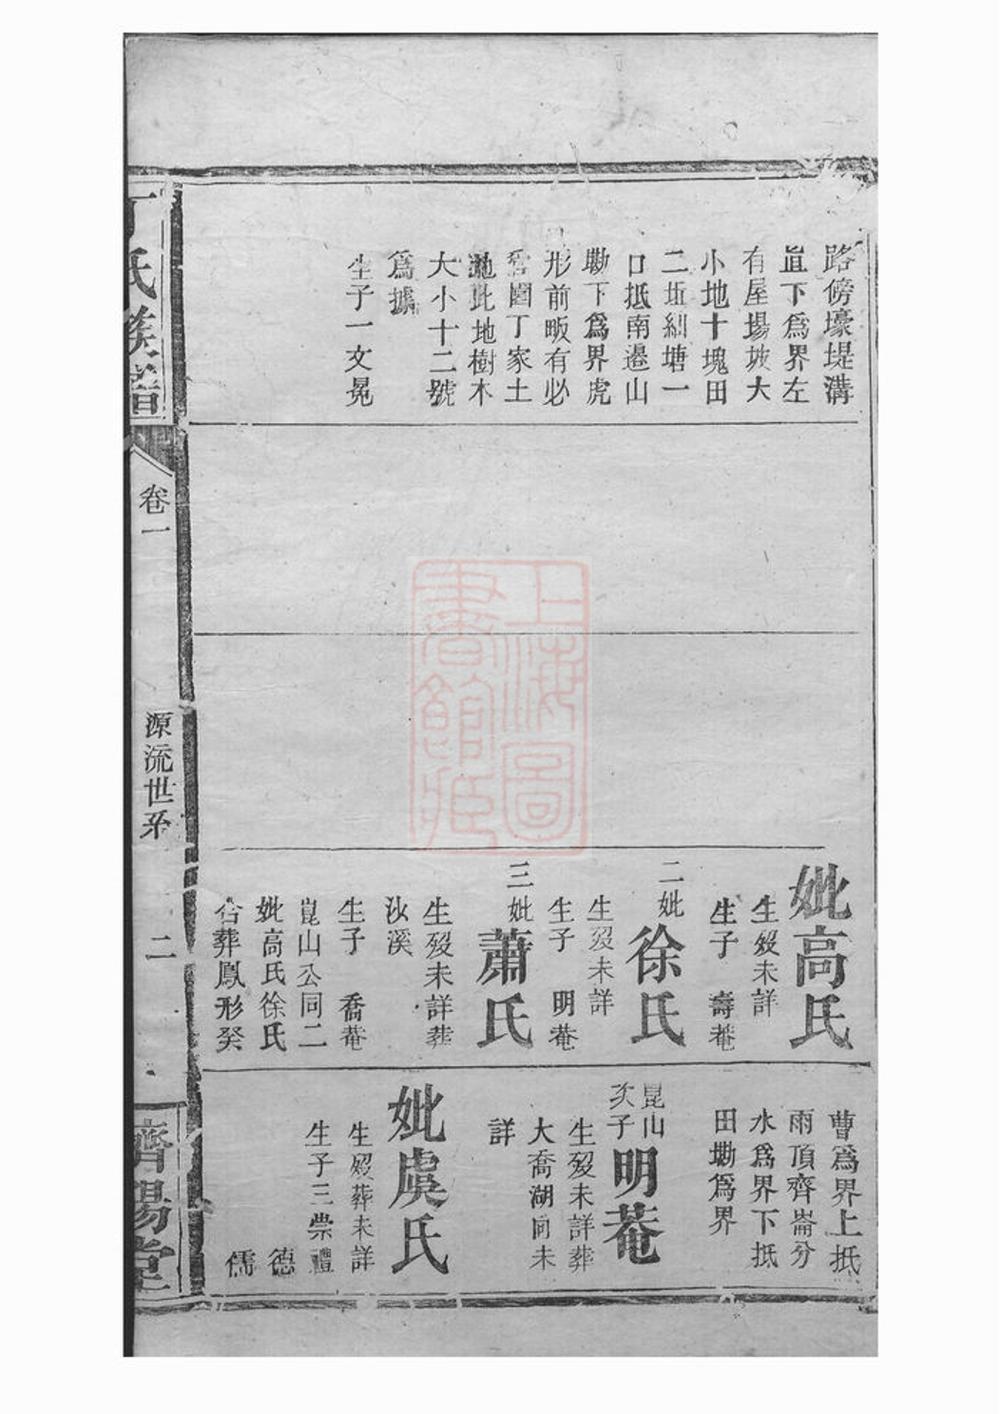 路傍壕堤溝
直下爲界左
有屋場坡大
小地十塊田
二坵糾塘一
口抵南邉山
勘下爲界虎
形前畈有必
雲園丁家土
地此地樹木
大小十二號
爲據
生子一文冕
妣高氏
生歿未詳
生子 壽菴
二妣徐氏
生歿未詳
生子 明菴
三妣蕭氏
生歿未詳葬
汝溪
生子 喬菴
崑山公同二
妣高氏徐氏
合葬鳳形癸
曹爲界上抵
雨頂齊崙分
水爲界下抵
田墈爲界
崑山次子明菴
生歿未詳葬
大喬湖同未
詳
妣虞氏
生歿葬未詳
生子三崇禮
德
儒
丁氏族譜
卷一
源流世系
二
濟陽堂
上海圖書館藏